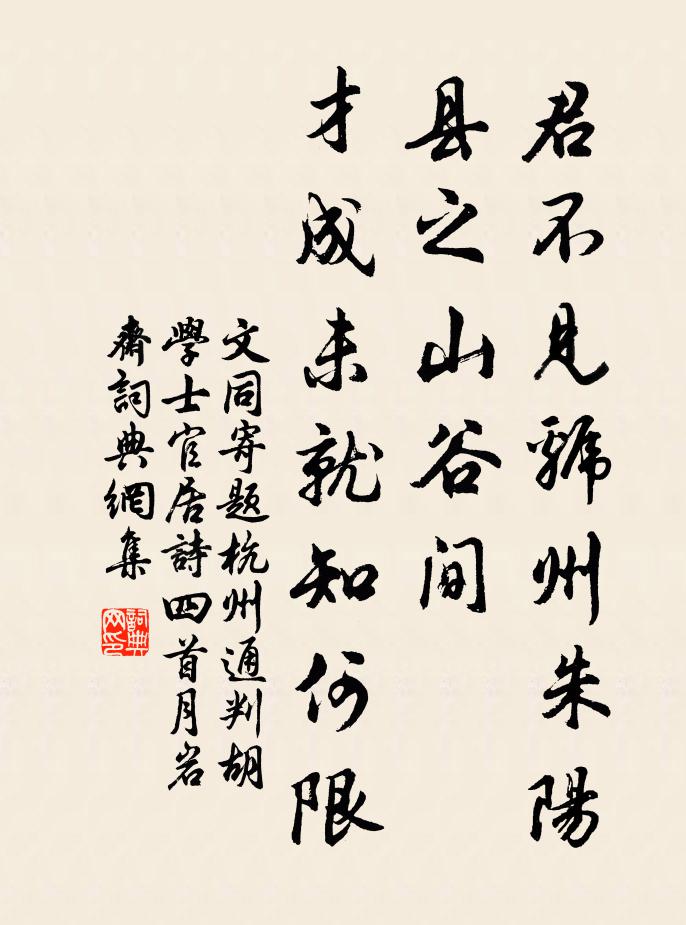 君不見虢州朱陽
县之山谷间
才成未就知何限
文同寄题杭州通判胡
學士官居詩四首月岩
齋詞典網集
詞典
网印